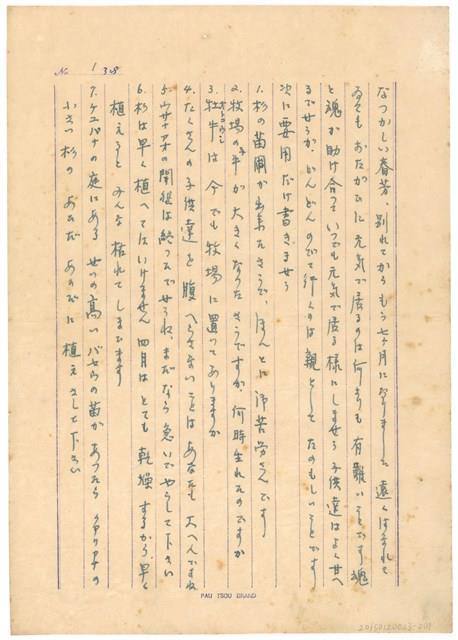 No 1 328
なつかしい春芳、別れてからもう七ヶ月になりました 遠くはなれて
ゐてもおたがひに元気で居るのは何よりも有難いことです 魂
と魂が助け合っていつでも元気で居る様にしませう 子供達はよく甘へ
るでせうが、どんどんのびて行くのは親としてたのもしいことです
次に要用だけ書きませう
1. 杉の苗圃が出来たさうで、ほんとに御苦労さんです
2. 牧場の牛が大きくなったさうですが、何時生れたのですか
3. 牡牛は今でも牧場に置いてありますか
4. たくさんの子供達を腹へらさないことはあなたも大へんですね
5. の開墾は終ったでせうね、まだなら急いでやらして下さい
6. 杉は早く植へてはいけません 四月はとても乾燥するから、早く
植えると みんな枯れてしまひます
7. の庭にある せいの高いバせうの苗があったら の
小さい杉の あひだ あひだに植えさして下さい
PAU TSOU BRAND
20150120023-201